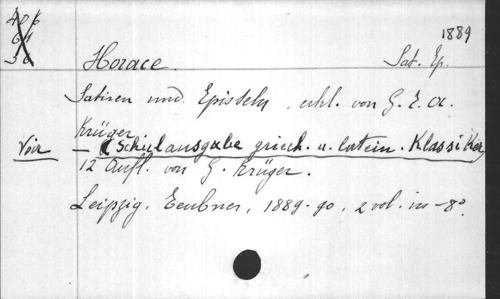 1889
Horace. Sat. Ep.
Satiren und Episteln, erkl. von G. T. A.
Krüger
Voir — (Schulausgabe griech. u. latein. Klassiker
12 Aufl. von G. Krüger.
Leipzig, Teubner, 1889-90, 2 vol. in-8°